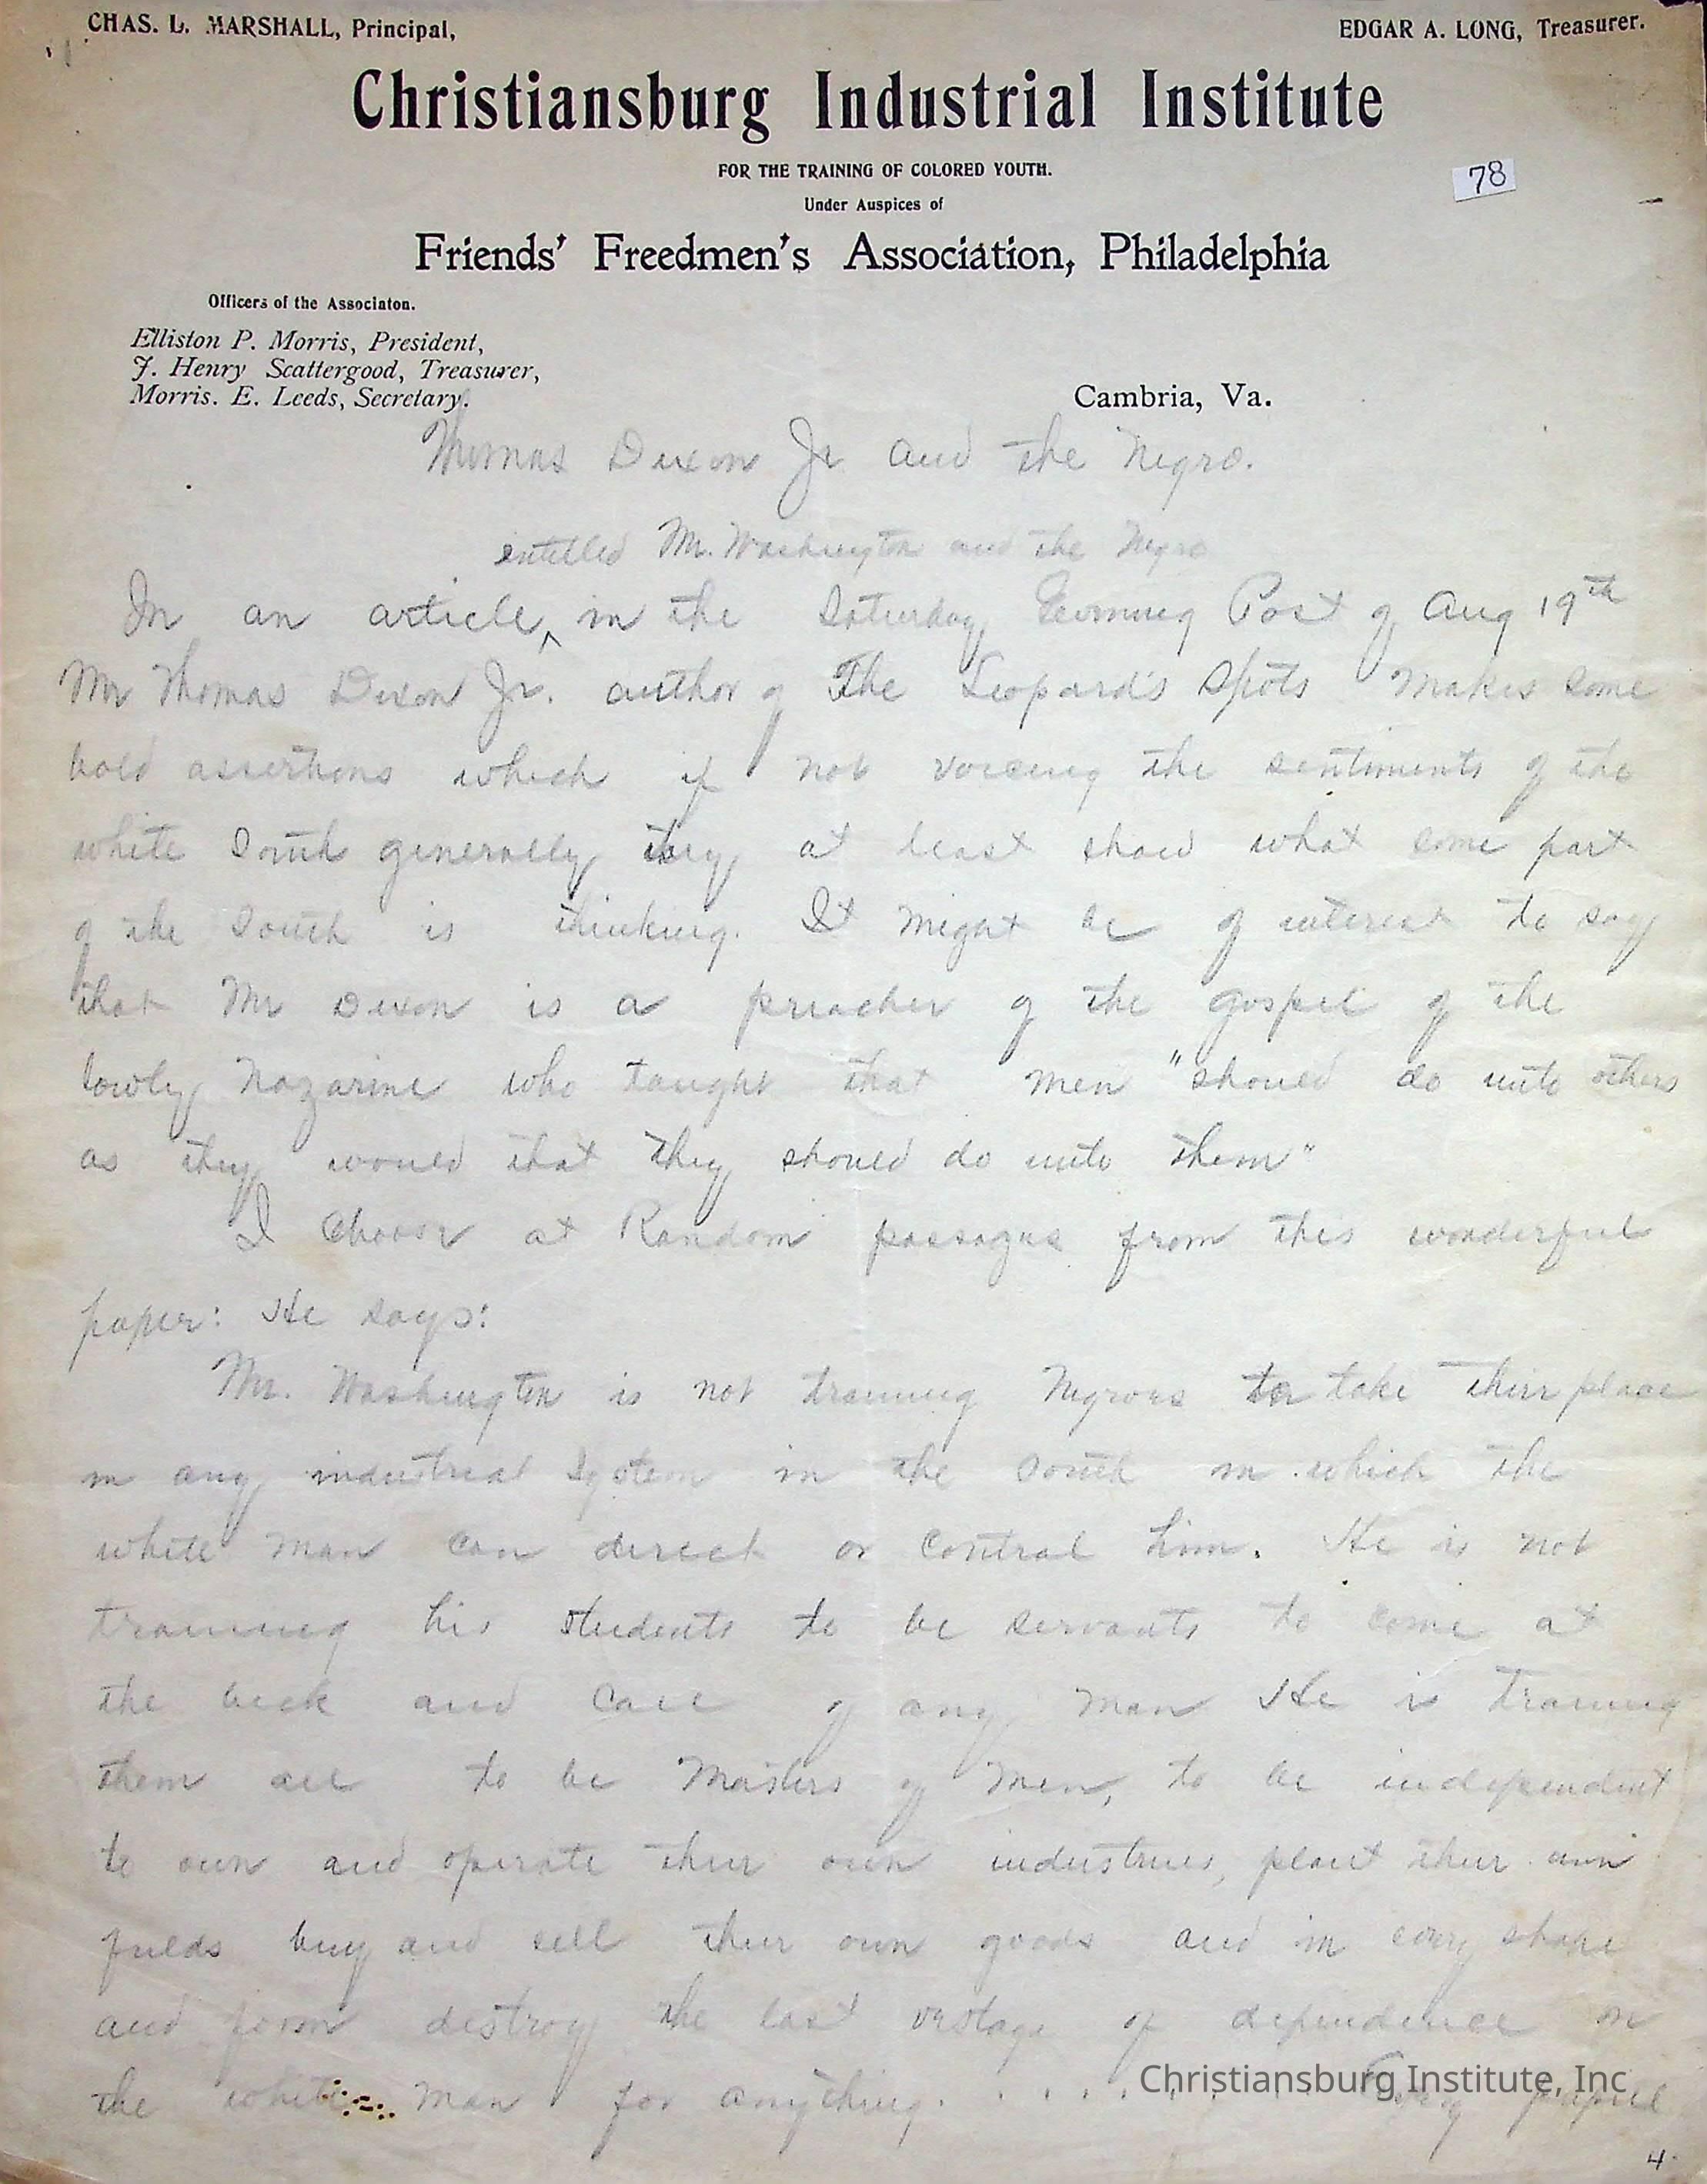 CHAS. L. MARSHALL, Principal,
EDGAR A. LONG, Treasurer.
Christiansburg Industrial Institute
FOR THE TRAINING OF COLORED YOUTH.
78
Under Auspices of
Friends' Freedmen's Association, Philadelphia
Officers of the Associaton.
Elliston P. Morris, President,
J. Henry Scattergood, Treasurer,
Morris. E. Leeds, Secretary.
Cambria, Va.
Thomas Dixon Jr and the Negro.
entitled Mr. Washington and the Negro
In an article ^ in the Saturday Evening Post of Aug 19th
Mr Thomas Dixon Jr. author of The Leopard's Spots makes some
bold assertions which if not voicing the sentiments of the
white South generally they at least show what some part
of the South is thinking. It might be of interest to say
that Mr Dixon is a preacher of the gospel of the
lowly Nazarine who taught that men "should do unto others
as they would that they should do unto them"
I choose at Random passages from this wonderful
paper: He says:
Mr. Washington is not training Negroes to take their place
in any industrial System in the South in which the
white man can direct or control him. He is not
training his students to be servants to come at
the beck and call of any man He is training
them all to be Masters of Men, to be independent
to own and operate their own industries, plant their own
fields buy and sell their own goods and in every shape
and form destroy the last vestage of dependence on
the white man for anything. . . . . . . Every pupil
Christiansburg Institute, Inc
4